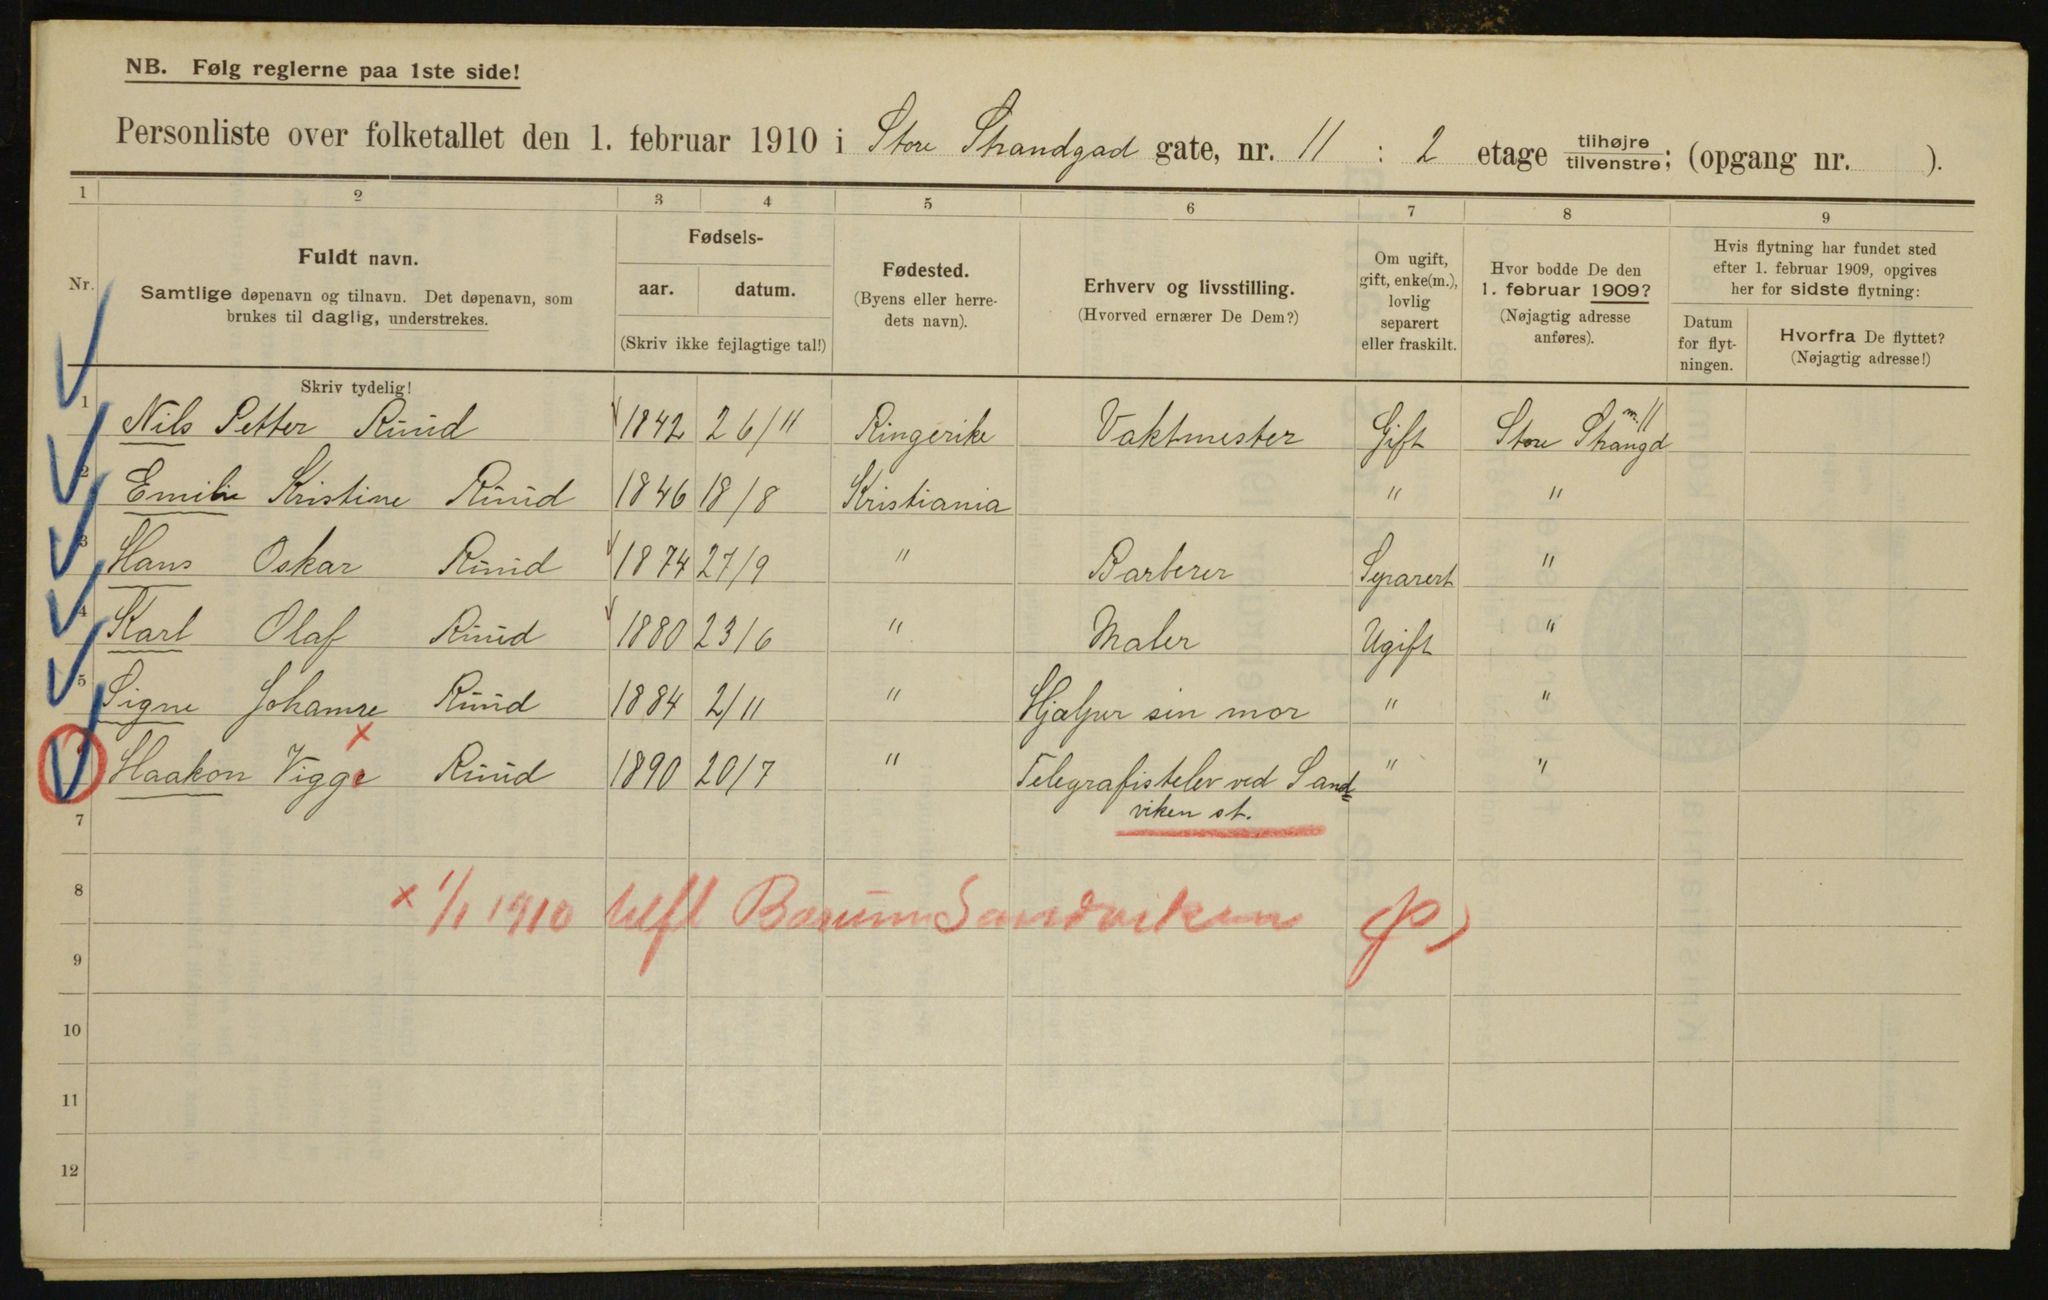 NB. Følg reglerne paa 1ste side!
Personliste over folketallet den 1. februar 1910 i Store Strandgad gate, nr. 11 : 2 etage tilhøjre/tilvenstre; (opgang nr. ).
1 2 3 4 5 6 7 8 9
Nr.
Fuldt navn.
Samtlige døpenavn og tilnavn. Det døpenavn, som
brukes til daglig, understrekes.
Fødsels-
aar. datum.
(Skriv ikke fejlagtige tal!)
Fødested.
(Byens eller herre-
dets navn).
Erhverv og livsstilling.
(Hvorved ernærer De Dem?)
Om ugift,
gift, enke(m.),
lovlig
separert
eller fraskilt.
Hvor bodde De den
1. februar 1909?
(Nøjagtig adresse
anføres).
Hvis flytning har fundet sted
efter 1. februar 1909, opgives
her for sidste flytning:
Datum
for flyt-
ningen.
Hvorfra De flyttet?
(Nøjagtig adresse!)
Skriv tydelig!
1 Nils Petter Ruud 1842 26/11 Ringerike Vaktmester Gift Store Strangd nr. 11
2 Emilie Kristine Ruud 1846 18/8 Kristiania " "
3 Hans Oskar Ruud 1874 27/9 " Barberer Separert "
4 Karl Olaf Ruud 1880 23/6 " Maler Ugift "
5 Signe Johanne Ruud 1884 2/11 " Hjælper sin mor " "
6 Haakon Viggo Ruud 1890 20/7 " Telegrafistelev ved Sand= " "
viken st.
7
8 x 1/1 1910 Bærum Sandviken
9
10
11
12